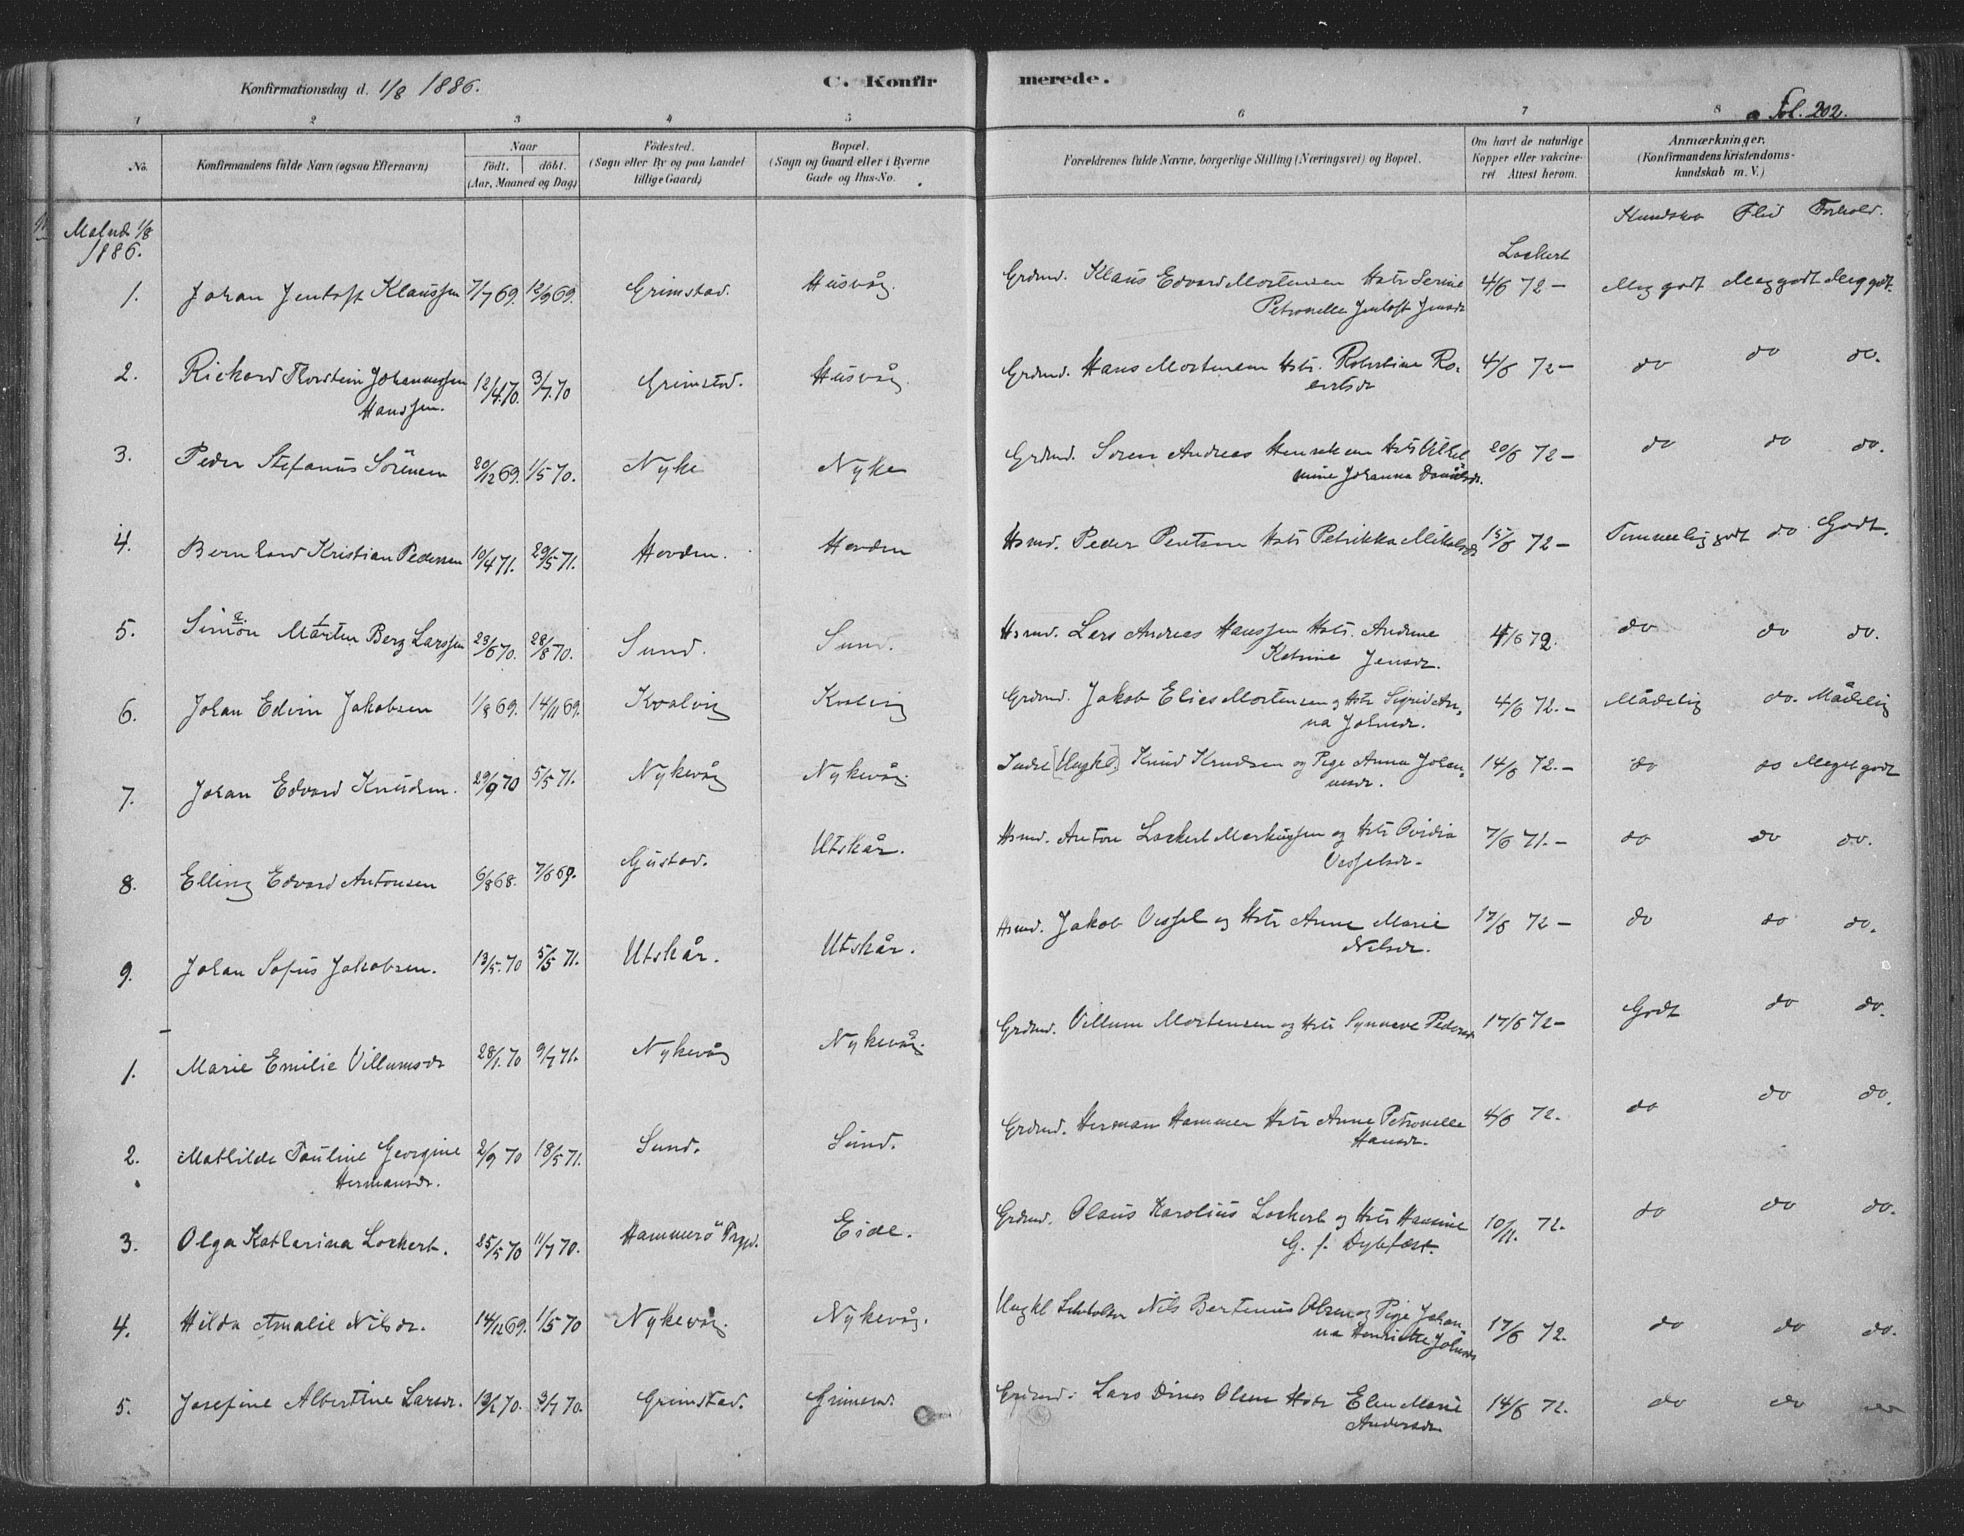 Konfirmationsdag d. 1/8 1886. C. Konfirmerede.
Fol. 202.
1 2 3 4 5 6 7 8
No. Konfirmandens fulde Navn (ogsaa Efternavn) Naar födt. döbt. (Aar, Maaned og Dag) Födested. (Sogn eller By og paa Landet tillige Gaard) Bopæl. (Sogn og Gaard eller i Byerne Gade og Hus-No. Forældrenes fulde Navne, borgerlige Stilling (Næringsvei) og Bopæl. Om havt de naturlige Kopper eller vakcineret Attest herom. Anmærkninger. (Konfirmandens Kristendomskundskab m. V.)
Malnæs 1/8 1886.
Kundskab Flid Forhold.
Lockert
1. Johan Jentoft Klaussen 7/7 69. 12/9 69. Grimstad. Husvåg. Grdmd. Klaus Edvard Mortensen Hstr Serine Petronelle Jentoft Jensdr 4/6 72 – Meg godt Meg godt Meg godt.
2. Rickard Thorstein Johannessen Hanssen. 12/4 70. 3/7 70 Grimstad. Husvåg. Grdmd. Hans Mortensen Hstr. Robertine Roertsdr 4/6 72 – do do do.
3. Peder Stefanus Sörensen 20/12 69. 1/5 70. Nyke Nyke Grdmd. Soren Andreas Hstr Vilhelmine Johanna Danielsdr. 20/6 72 – do do do.
4. Bernhard Kristian Pedersen 10/4 71. 29/5 71. Hovden. Hovden Hsmd. Peder Hstr Petrikka Mikalsdr 15/6 72 – Temmelig godt do Godt.
5. Simon Mårten Berg Larssen 23/6 70. 28/8 70. Sund. Sund. Hsmd. Lars Andreas Hanssen Hstr. Andrine Katrine Jensdr. 4/6 72. do do do.
6. Johan Edvin Jakobsen 1/8 69. 14/11 69. Kvalvig Kvalvig Grdmd. Jakob Elies Mortensen og Hstr Sigrid Anna Johnsdr. 4/6 72. – Mådelig do. Mådelig
7. Johan Edvard Knudsen. 29/9 70 5/5 71. Nykevåg Nykevåg. Indre [Ungkl] Knud Knudsen og Pige Anna Johannesdr. 14/6 72. – do do Meget godt
8. Elling Edvard Antonsen 6/8 68. 7/6 69. Gustad. Utskår. Hsmd. Anton Lockert Markussen og Hstr Ovidia Vesselsdr. 7/6 71. – do do do.
9. Johan Sofus Jakobsen. 13/5. 70 5/5 71. Utskår. Utskår. Hsmd. Jakob Vessel og Hstr Anne Marie Nilsdr. 17/6 72 – do do do.
1. Marie Emilie Villumsdr 28/1. 70 9/7 71. Nykevåg Nykevåg. Grdmd. Villum Mortensen og Hstr Synneve Pedersdr 17/6 72 – Godt do do.
2. Mathilde Pauline Georgine Hermansdr. 2/9 70 18/5 71. Sund. Sund. Grdmd. Herman Hammer Hstr Anne Petronelle Hansdr. 4/6 72. do do do.
3. Olga Katharina Lockert. 25/5 70 11/7 70. Hammerö Prgd. Eide. Grdmd. Olaus Karolius Lockert og Hstr Hansine G. f. Dybfæst. 10/11. 72. do do do.
4. Hilda Amalie Nilsdr. 14/12 69. 1/5 70 Nykevåg. Nykevåg. Ungkl Nils Bertinus Olsen og Pige Johanna Henriette Johnsdr 17/6 72. do do do.
5. Josefine Albertine Larsdr. 19/1 70. 3/7 70. Grimstad. Grdmd. Lars Dines Olsen Hstr Elen Marie Andersdr 14/6 72. do do do